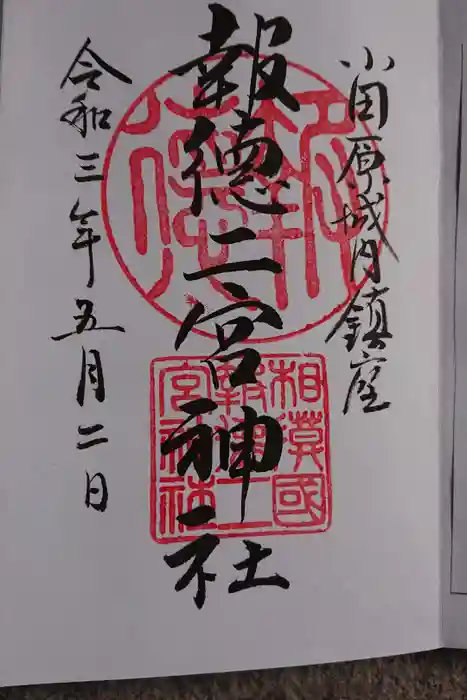 小田原城内鎮座
報徳二宮神社
令和三年五月二日
相模國
報徳二
宮神社
報徳